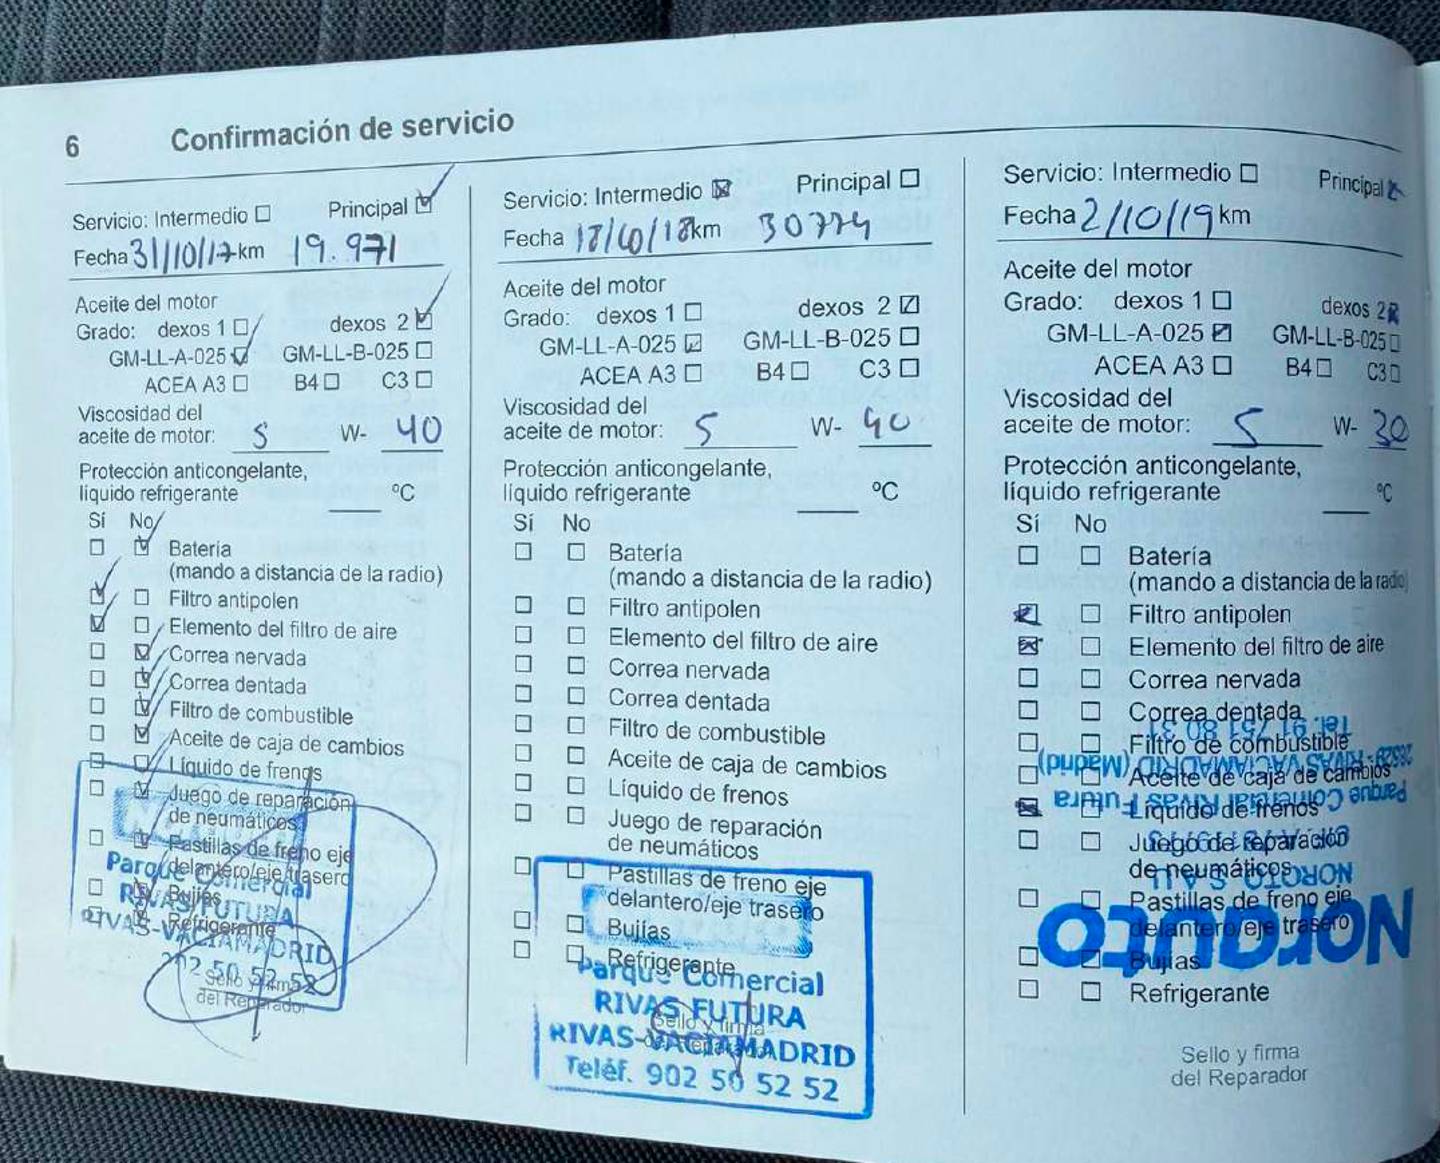 6 Confirmación de servicio
Servicio: Intermedio ☐ Principal ☑
Fecha 31/10/17 km 19.971
Aceite del motor
Grado: dexos 1 ☐ dexos 2 ☑
GM-LL-A-025 ☑ GM-LL-B-025 ☐
ACEA A3 ☐ B4 ☐ C3 ☐
Viscosidad del
aceite de motor: 5 W- 40
Protección anticongelante,
líquido refrigerante ºC
Sí No
☐ ☑ Batería
(mando a distancia de la radio)
☑ ☐ Filtro antipolen
☑ ☐ Elemento del filtro de aire
☐ ☑ Correa nervada
☐ ☑ Correa dentada
☐ ☑ Filtro de combustible
☐ ☑ Aceite de caja de cambios
☐ ☑ Líquido de frenos
☐ ☑ Juego de reparación
de neumáticos
☐ ☑ Pastillas de freno eje
delantero/eje trasero
☐ ☑ Bujías
☐ ☑ Refrigerante
Sello y firma
del Reparador
Parque Comercial
RIVAS FUTURA
RIVAS-VACIAMADRID
902 50 52 52
Servicio: Intermedio ☒ Principal ☐
Fecha km 30774
Aceite del motor
Grado: dexos 1 ☐ dexos 2 ☑
GM-LL-A-025 ☑ GM-LL-B-025 ☐
ACEA A3 ☐ B4 ☐ C3 ☐
Viscosidad del
aceite de motor: 5 W- 40
Protección anticongelante,
líquido refrigerante ºC
Sí No
☐ ☐ Batería
(mando a distancia de la radio)
☐ ☐ Filtro antipolen
☐ ☐ Elemento del filtro de aire
☐ ☐ Correa nervada
☐ ☐ Correa dentada
☐ ☐ Filtro de combustible
☐ ☐ Aceite de caja de cambios
☐ ☐ Líquido de frenos
☐ ☐ Juego de reparación
de neumáticos
☐ ☐ Pastillas de freno eje
delantero/eje trasero
☐ ☐ Bujías
☐ ☐ Refrigerante
Sello y firma
del Reparador
Parque Comercial
RIVAS FUTURA
RIVAS-VACIAMADRID
Teléf. 902 50 52 52
Servicio: Intermedio ☐ Principal ☒
Fecha 2/10/19 km
Aceite del motor
Grado: dexos 1 ☐ dexos 2 ☒
GM-LL-A-025 ☑ GM-LL-B-025 ☐
ACEA A3 ☐ B4 ☐ C3 ☐
Viscosidad del
aceite de motor: 5 W- 30
Protección anticongelante,
líquido refrigerante ºC
Sí No
☐ ☐ Batería
(mando a distancia de la radio)
☒ ☐ Filtro antipolen
☒ ☐ Elemento del filtro de aire
☐ ☐ Correa nervada
☐ ☐ Correa dentada
☐ ☐ Filtro de combustible
☐ ☐ Aceite de caja de cambios
☒ ☐ Líquido de frenos
☐ ☐ Juego de reparación
de neumáticos
☐ ☐ Pastillas de freno eje
delantero/eje trasero
☐ ☐ Bujías
☐ ☐ Refrigerante
Sello y firma
del Reparador
Norauto
NOROTO, S.A.U.
Parque Comercial Rivas Futura
RIVAS VACIAMADRID (Madrid)
Tel. 91 751 80 31